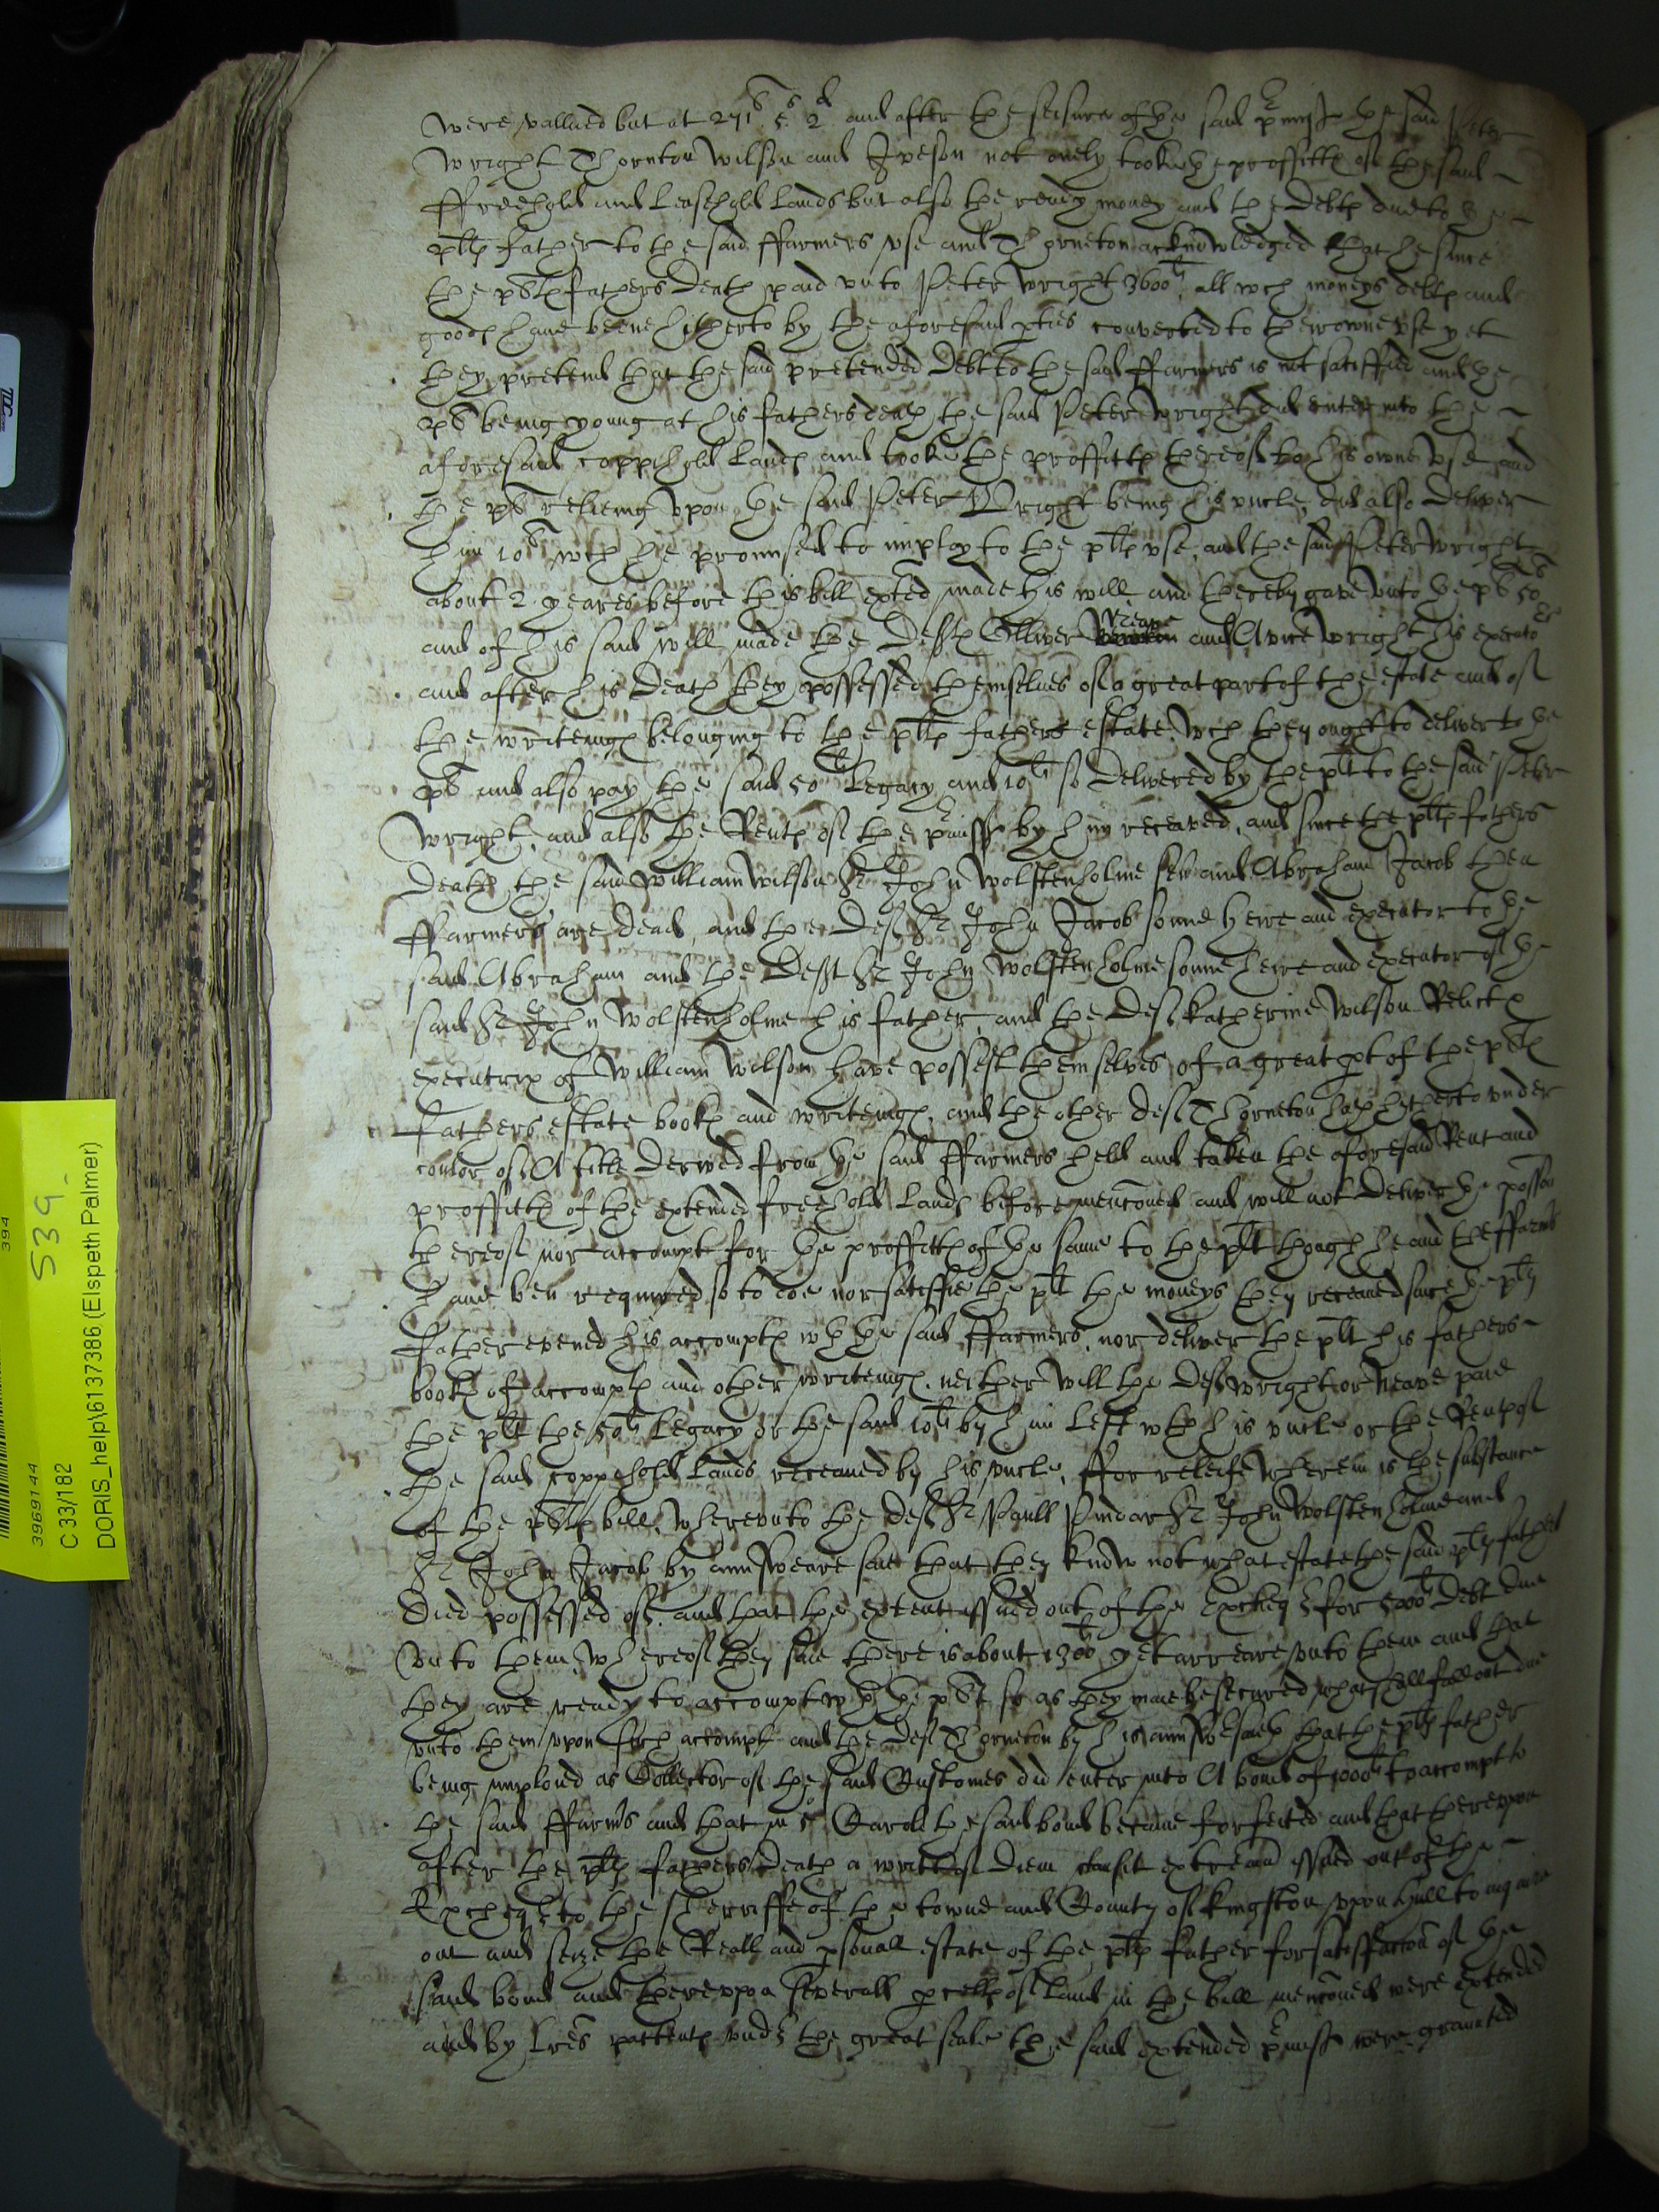 were vallued but at 271li 5s 2d and after the seisure of the said pmiss the said Peter
Wright Thornton Wilson and Iveson not onely tooke the proffitts of the said
ffreehold and Leasehold Lands but also the ready money and the Debts due to the
plts father to the said ffarmers use and Thorneton acknowledged that he since
the plts fathers Death paid unto Peter Wright 3600li, all wch moneys debts and
goods have beene hitherto by the aforesaid pties converted to their owne use yet
they pretend that the said pretended Debt to the said ffarmers is not satisfied and the
plt being young at his fathers death the said Peter Wright did enter into the
aforesaid coppihold Lands and tooke the proffitts thereof to his owne use and
the plt relieing upon the said Peter Wright being his uncle, did also deliver
him 10li wch he promised to imploy to the plts use, and the said Peter Wright
about 2 yeares before this bill exted made his will and thereby gave unto the plt 50li
and of his said will made the Defts Olliver Neave and Avice Wright his executors
and after his Death they possessed themselves of a great part of the estate and of
the writeings belonging to the plts fathers estate wch they ought to deliver to the
plt and also pay the said 50li Legacy and 10li so delivered by the plt to the said Peter
Wright, and also the Rents of the pmiss by him receaved, and since the plts fathers
Death the said William Wilson Sr John Wolstenholme and Abraham Jacob then
ffarmers are dead, and the Deft Sr John Jacob sonne heire and executor to the
said Abraham and the Deft Sr John Wolstenholme sonne heire and executor of the
said Sr John Wolstenholme his father, and the Deft Katherine Wilson Relict &
executrix of William Wilson have possest themselves of a great pt of the plts
fathers estate books and writeings, and the other Deft Thorneton hath hitherto under
coulor of A title Derived from the said ffarmers held and taken the aforesaid Rent and
proffitts of the extended freehold Lands before menconed and will not deliver the possion
thereof nor accompt for the proffitts of the same to the plt though he and the ffarmrs
have ben required so to doe nor satisfie the plt the moneys they receaved since the plts
father evened his accompts wth the said ffarmers, nor deliver the plt his fathers
books of accompts and other writeings, neither will the Defts Wright or Neave paie
the plt the 50li Legacy or the said 10li by him Left wth his uncle or the Rents of
the said coppihold Lands receaved by his uncle, ffor releife wherein is the substance
of the plts bill, whereunto the Defts Sr Paull Pindar Sr John Wolstenholme and
Sr John Jacob by answeare saie that they know not what estate the said plts father
died possessed of, and that the extent issued out of the Exchequer for 5000li Debt due
unto them, whereof they saie there is about 1300li yet arreare unto them and that
they are ready to accompt wth the plt so as they maie be secured what shall fall out due
unto them upon such accompt and the Deft Thorneton by his answe saieth that the plts father
being imploied as Collector of the said Customes did enter into A bond of 5000li to accompt to
the said ffarmrs and that in 5o Caroli the said bond became forfeited and that thereupon
after the plts fathers Death a writt of Diem clausit extremu issued out of the
Exchequer to the sherriffe of the towne and County of Kingston upon Hull to inquire
out and seize the Reall and psonall estate of the plts father for satisfaccon of the
said bond and thereupon severall pcells of Land in the bill menconed were extended
and by Lres pattents under the great seale the said extended pmiss were graunted
3969144
394
539
C 33/182
DORIS_help\6137386 (Elspeth Palmer)